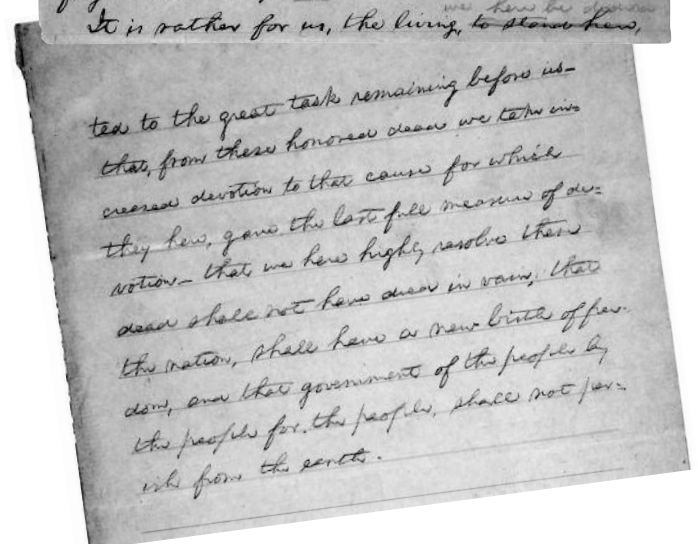 we here be dedica
It is rather for us, the living, to stand here,
ted to the great task remaining before us—
that, from these honored dead we take in-
creased devotion to that cause for which
they here, gave the last full measure of de-
votion— that we here highly resolve these
dead shall not have died in vain; that
the nation, shall have a new birth of free-
dom, and that government of the people by
the people for the people, shall not per-
ish from the earth.